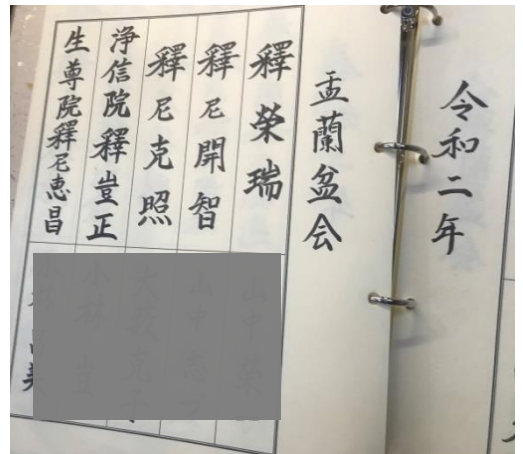 令和二年
盂蘭盆会
釋 栄瑞
釋尼開智
釋尼克照
浄信院釋豈正
生尊院釋尼恵昌